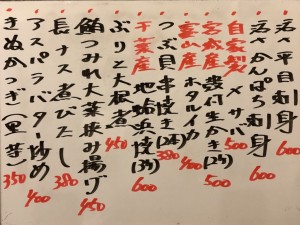 活さ平目刺身 600
活さかんぱち刺身 600
自家製 〆サバ 500
宮城産 殻付生かき(2ケ) 500
富山産 ホタルイカ 400
つぶ貝串焼き(2本) 380
千葉産 地蛤浜焼(3ケ) 600
ぶりと大根煮 450
鮪つみれ大葉挟み揚げ 450
長ナス煮びたし 380
アスパラバター炒め 400
きぬかつぎ(里芋) 350